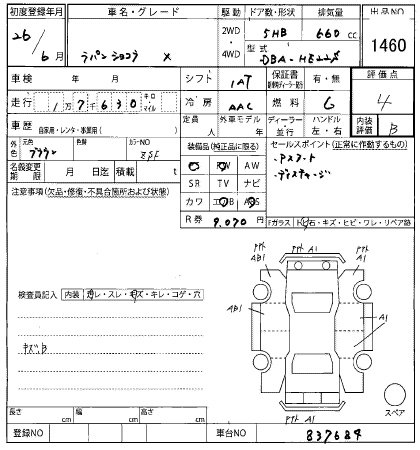 初度登録年月
車名・グレード
駆動
ドア数・形状
排気量
出品NO
26/6月
ラパンショコラ X
2WD・4WD
5HB
660 cc
1460
型式
DBA-HE22S
車検 年 月
シフト
1AT
保証書
有・無
評価点
4
走行
1万7千630
キロ・マイル
冷房
AAC
燃料
G
車歴
自家用・レンタ・事業用( )
定員
人
外車モデル
年
ディーラー・並行
ハンドル
左・右
内装評価
B
外色
元色
ブラウン
色替
カラーNO
ZSF
装備品(純正品に限る)
セールスポイント(正常に作動するもの)
・Pスタート
・ディスチャージ
名義変更期限
月 日迄
積載
t
PS PW AW
SR TV ナビ
カワ エアB ABS
R券
9,070 円
注意事項(欠品・修復・不具合箇所および状態)
Fガラス トビ石・キズ・ヒビ・ワレ・リペア跡
検査員記入
内装
ヨゴレ・スレ・キズ・キレ・コゲ・穴
キズB
アクト A1
アクト AB1
アクト A1
AB1
A1
アクト A1
スペア
長さ cm
幅 cm
高さ cm
登録NO
車台NO
837684